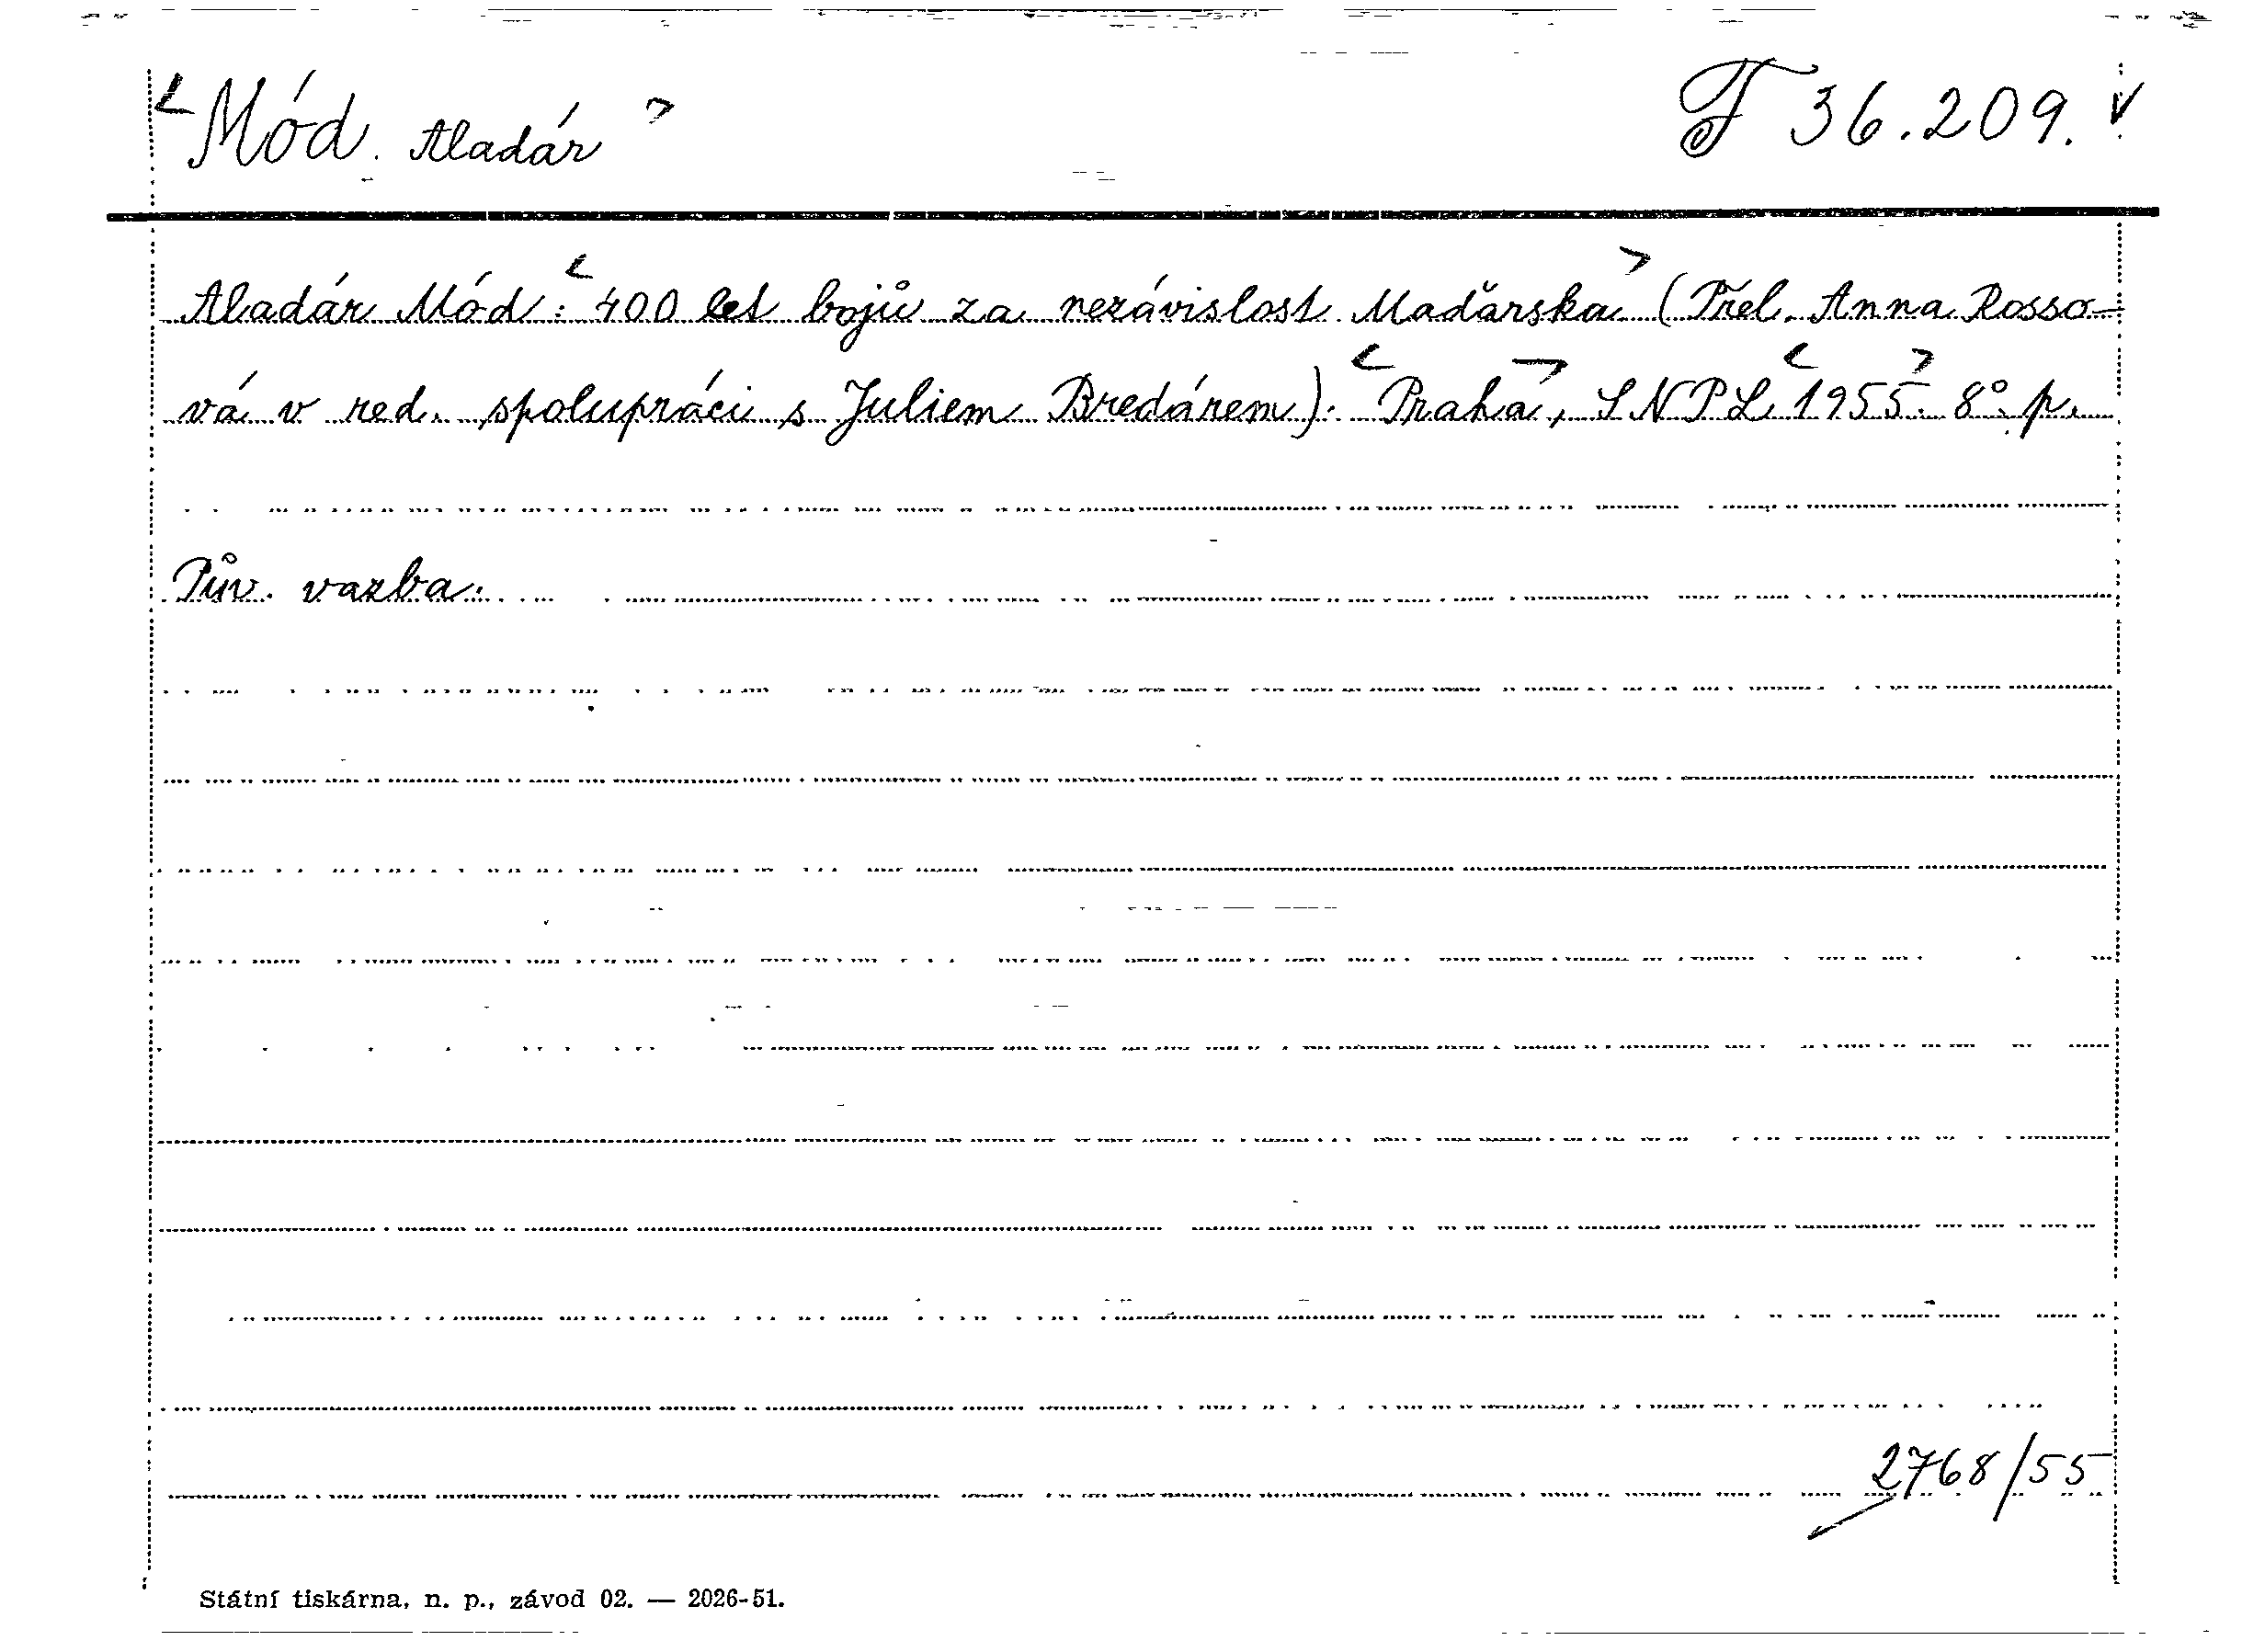 <Mód. Aladár> F 36.209. √
Aladár Mód: <400 let bojů za nezávislost Maďarska> (Přel. Anna Rosso-
vá v red. spolupráci s Juliem Bredárem). <Praha>, SNPL <1955>. 8° p.
Pův. vazba.
2768/55
Státní tiskárna, n. p., závod 02. — 2026-51.